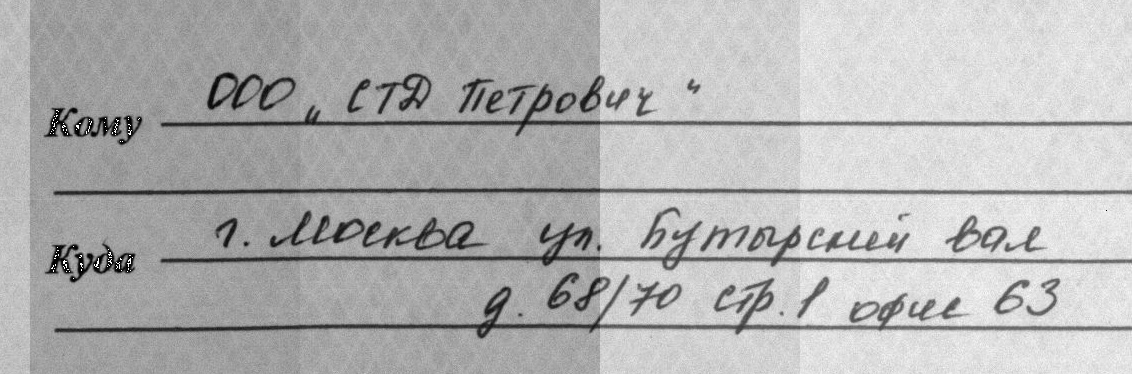 Кому ООО „СТД Петрович“
Куда г. Москва ул. Бутырский вал
д. 68/70 стр. 1 офис 63